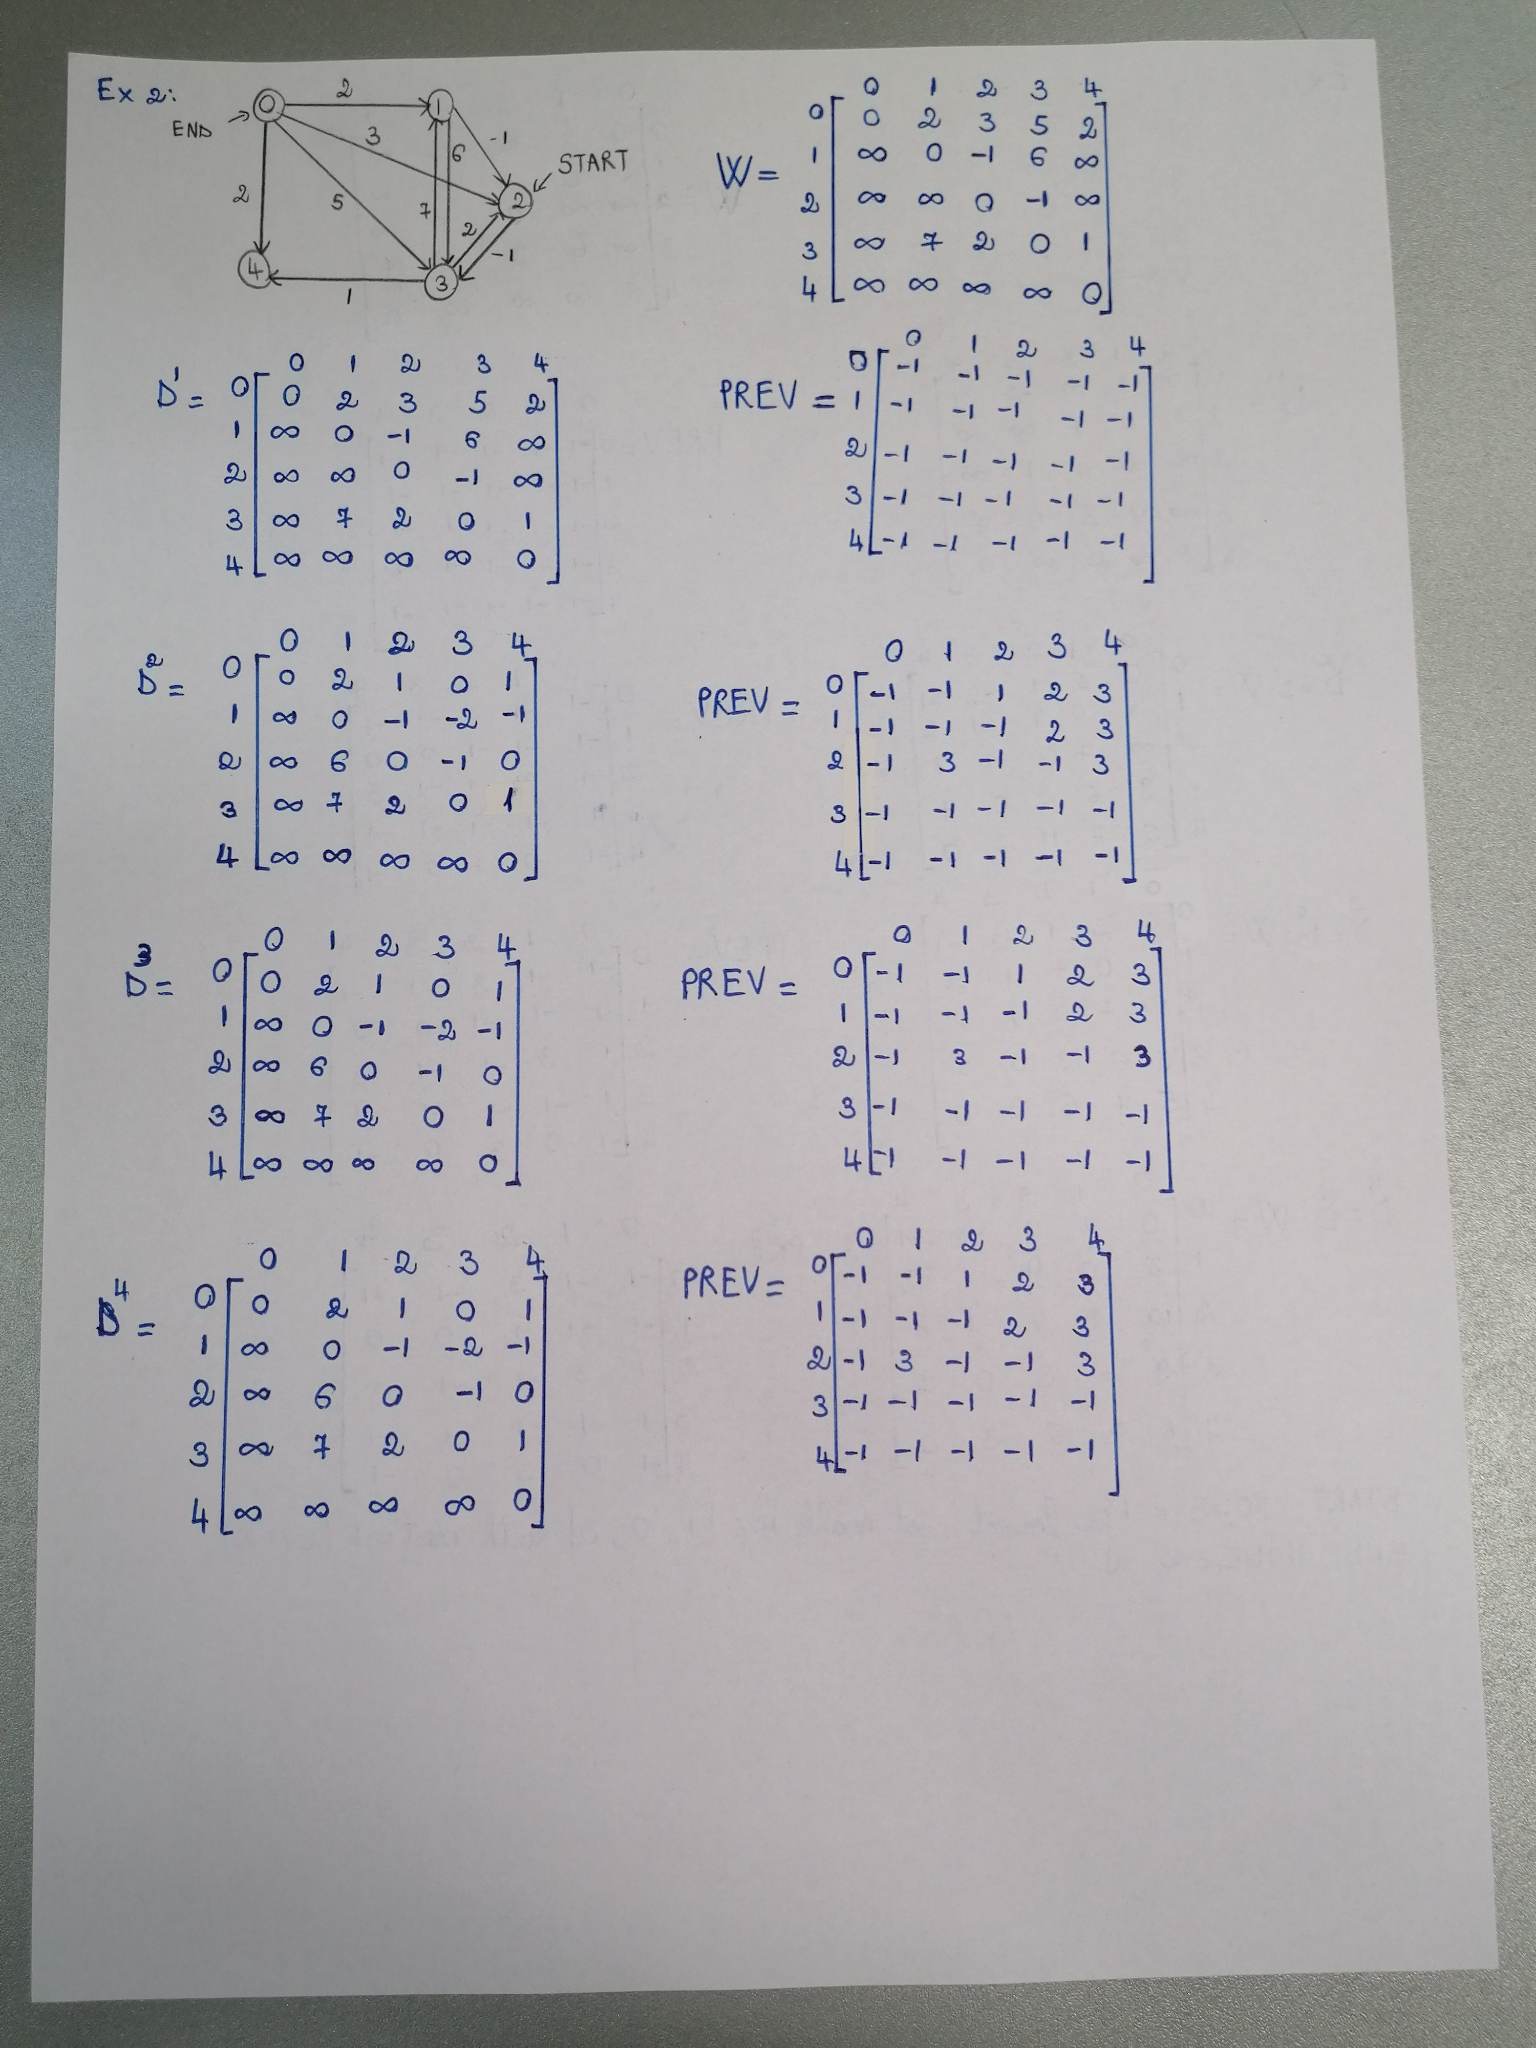 Ex 2:
0 2 1
END
3 6 -1
START
2 5 7 2 2 -1
4 1 3
0 1 2 3 4
0 0 2 3 5 2
W= 1 ∞ 0 -1 6 ∞
2 ∞ ∞ 0 -1 ∞
3 ∞ 7 2 0 1
4 ∞ ∞ ∞ ∞ 0
0 1 2 3 4
D¹= 0 0 2 3 5 2
1 ∞ 0 -1 6 ∞
2 ∞ ∞ 0 -1 ∞
3 ∞ 7 2 0 1
4 ∞ ∞ ∞ ∞ 0
0 1 2 3 4
0 -1 -1 -1 -1 -1
PREV = 1 -1 -1 -1 -1 -1
2 -1 -1 -1 -1 -1
3 -1 -1 -1 -1 -1
4 -1 -1 -1 -1 -1
0 1 2 3 4
D²= 0 0 2 1 0 1
1 ∞ 0 -1 -2 -1
2 ∞ 6 0 -1 0
3 ∞ 7 2 0 1
4 ∞ ∞ ∞ ∞ 0
0 1 2 3 4
PREV = 0 -1 -1 1 2 3
1 -1 -1 -1 2 3
2 -1 3 -1 -1 3
3 -1 -1 -1 -1 -1
4 -1 -1 -1 -1 -1
0 1 2 3 4
D³= 0 0 2 1 0 1
1 ∞ 0 -1 -2 -1
2 ∞ 6 0 -1 0
3 ∞ 7 2 0 1
4 ∞ ∞ ∞ ∞ 0
0 1 2 3 4
PREV = 0 -1 -1 1 2 3
1 -1 -1 -1 2 3
2 -1 3 -1 -1 3
3 -1 -1 -1 -1 -1
4 -1 -1 -1 -1 -1
0 1 2 3 4
D⁴= 0 0 2 1 0 1
1 ∞ 0 -1 -2 -1
2 ∞ 6 0 -1 0
3 ∞ 7 2 0 1
4 ∞ ∞ ∞ ∞ 0
0 1 2 3 4
PREV= 0 -1 -1 1 2 3
1 -1 -1 -1 2 3
2 -1 3 -1 -1 3
3 -1 -1 -1 -1 -1
4 -1 -1 -1 -1 -1